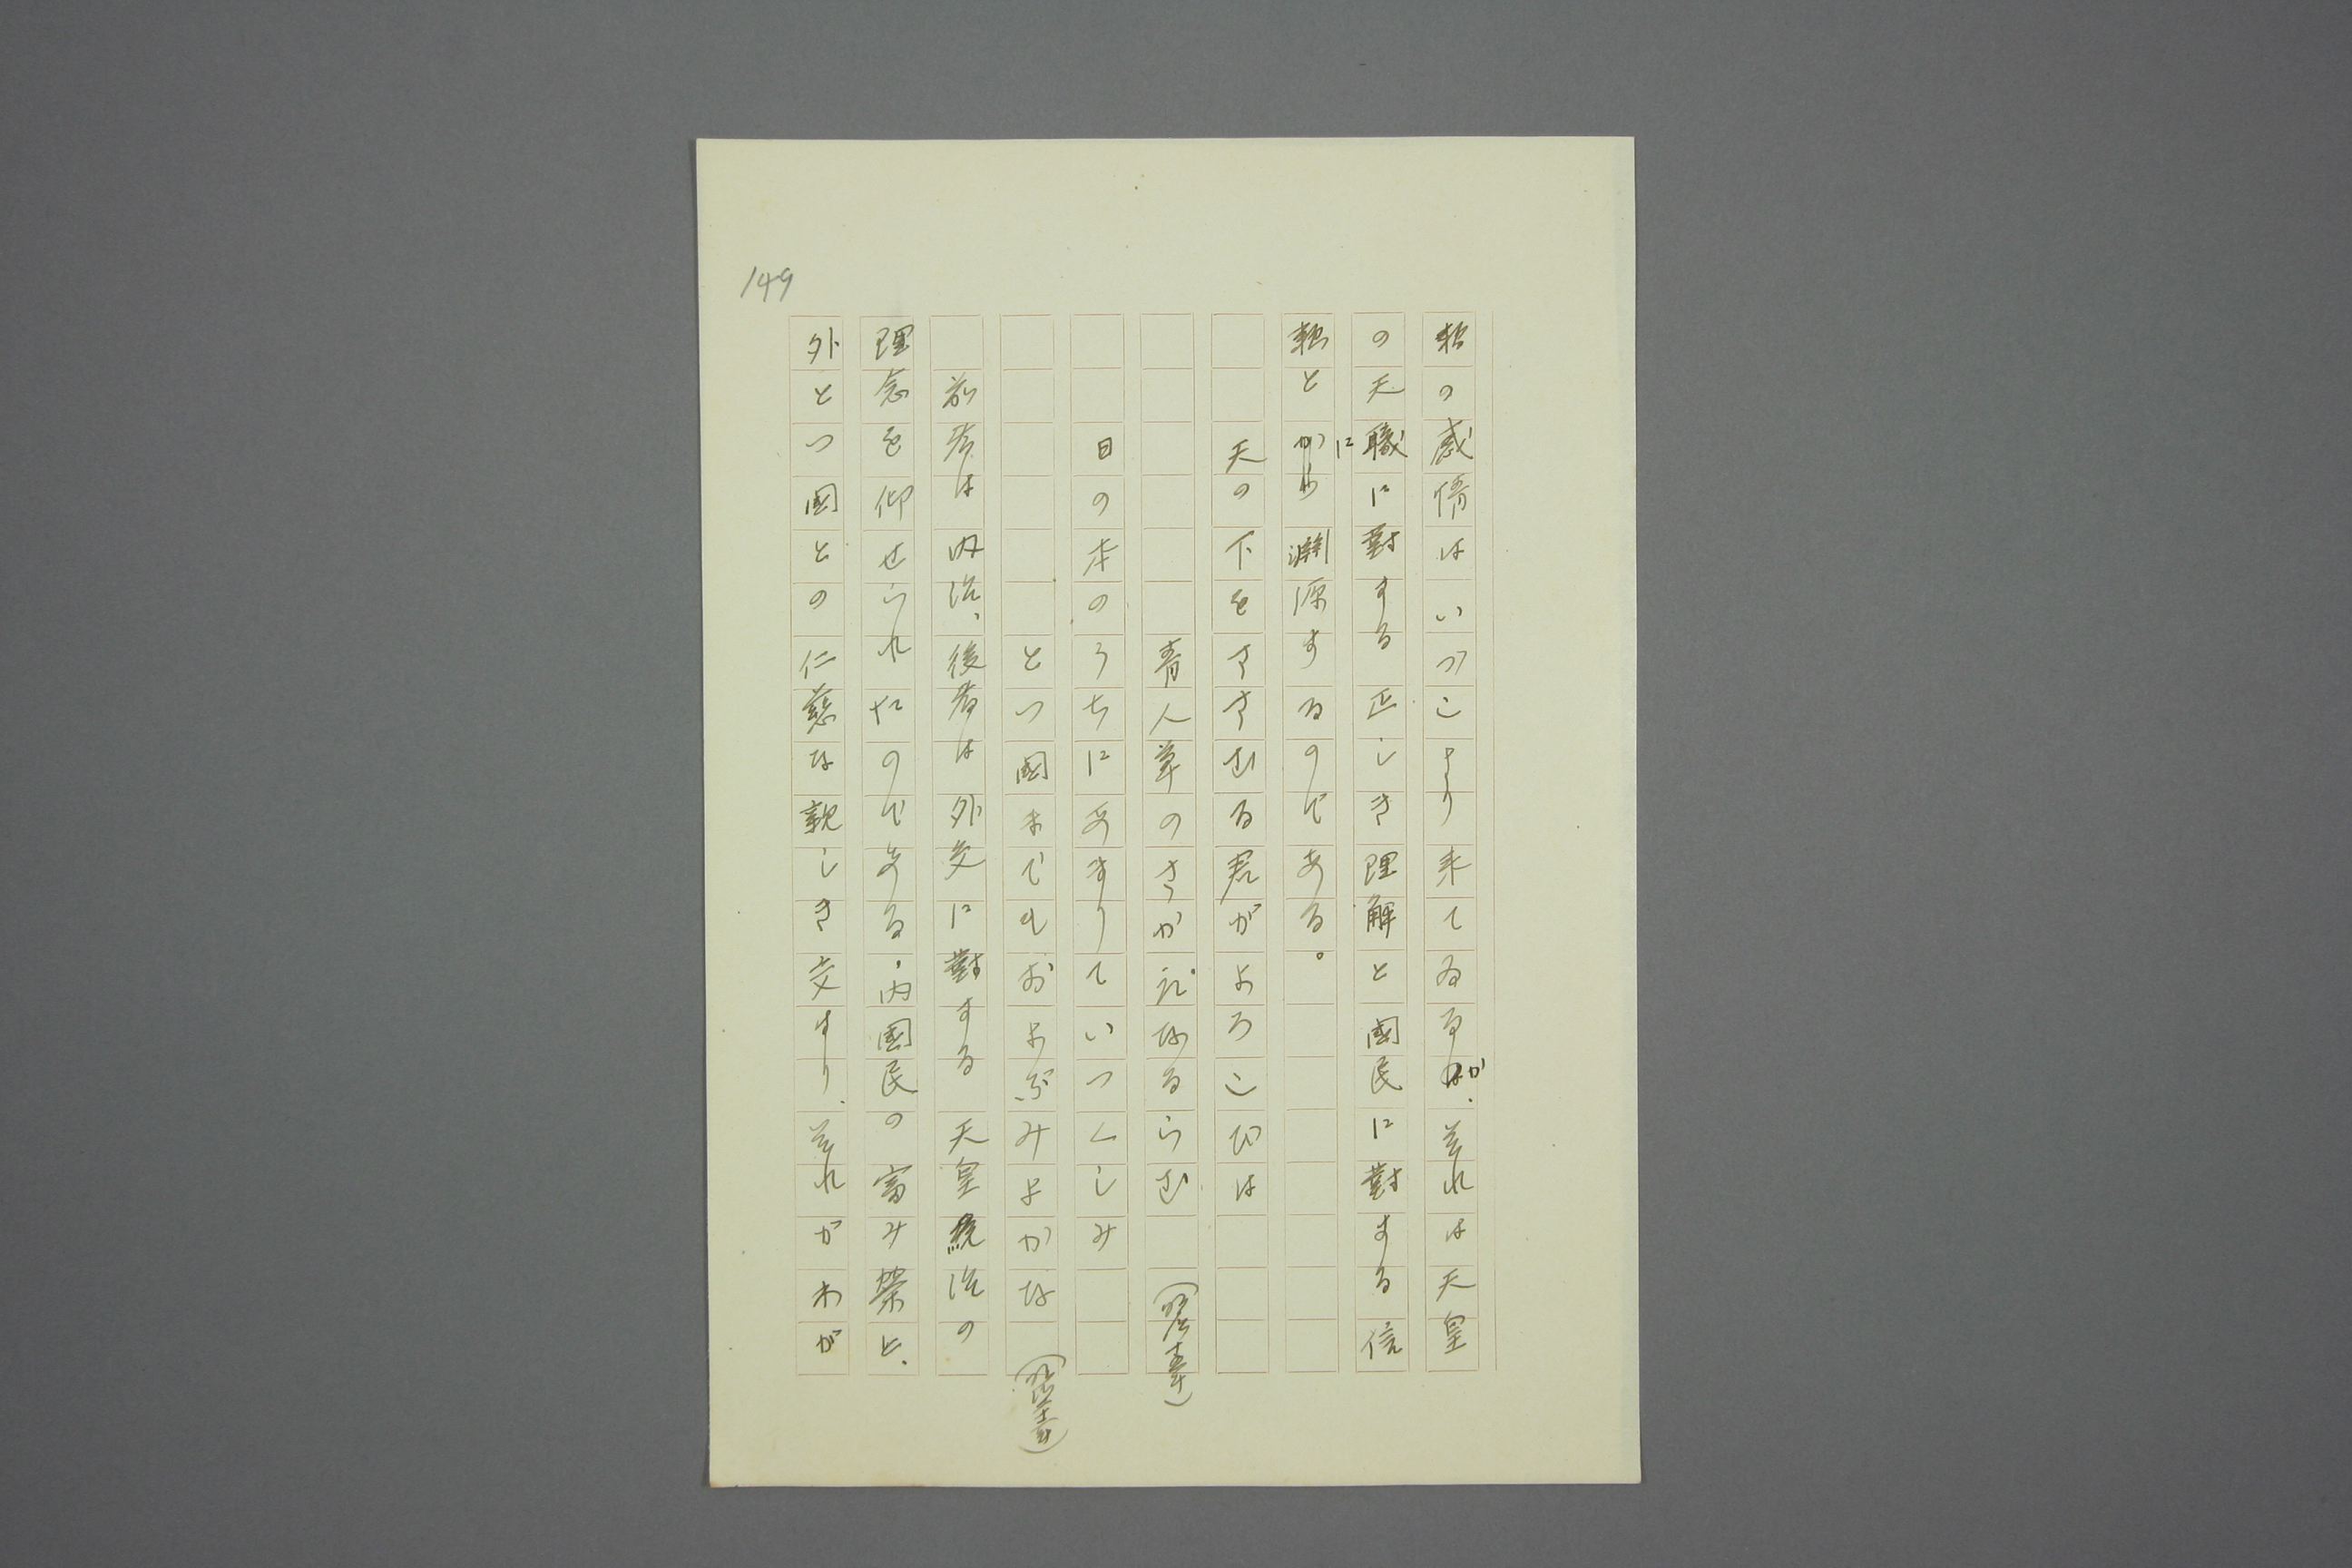 149
頼の感情はいづこより来てゐるか、それは天皇
の天職に對する正しき理解と國民に對する信
頼とに淵源するのである。
天の下をすすむる君がよろこびは
青人草のさかえなるらむ
日の本のうちにあまりていつくしみ
とつ國までもおよぶみよかな
前者は内治、後者は外交に對する天皇統治の
理念を仰せられたのである、内國民の富み榮と、
外とつ國との仁慈な親しき交すり、それがわが